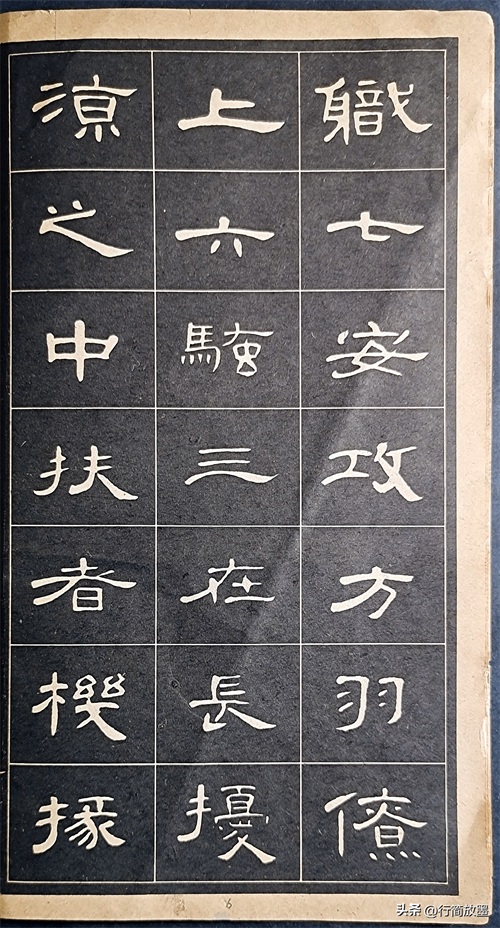 軄七安攻方羽僚
上六騷三在長擾
涼之中扶者機掾
6
头条 @行简放墨